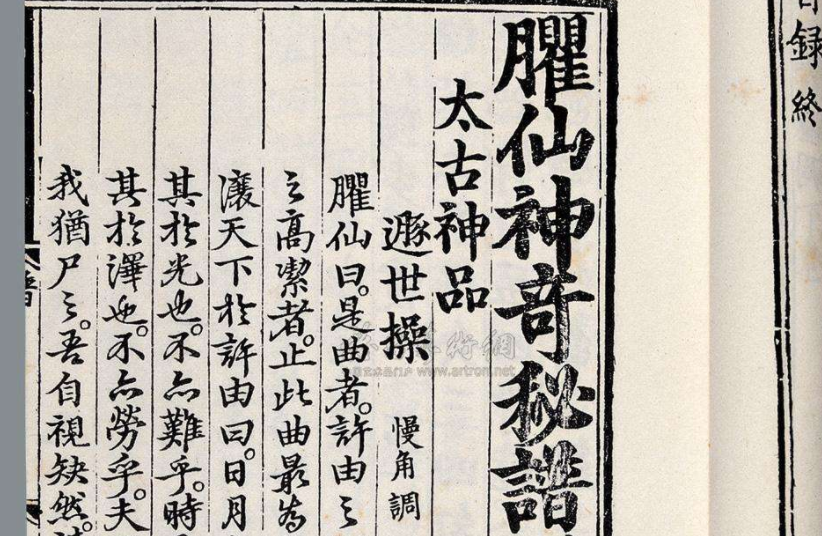 目録終
臞仙神奇秘譜
太古神品
遯世操 慢角調
臞仙曰。是曲者。許由之
之高潔者。止此曲最為
讓天下於許由曰。日月
其於光也。不亦難乎。時
其於澤也。不亦勞乎。夫
我猶尸之。吾自視缺然。
www.artron.net